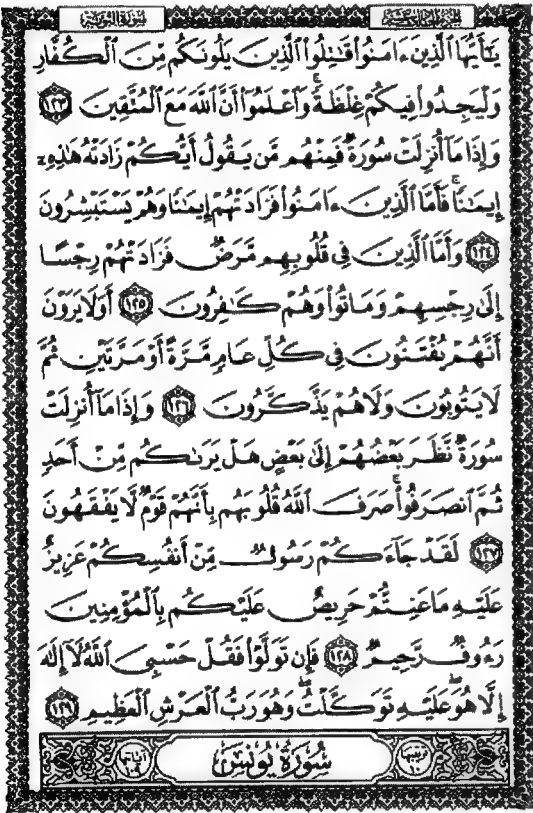 سُورَةُ التَّوْبَةِ
يَٰٓأَيُّهَا ٱلَّذِينَ ءَامَنُوا۟ قَٰتِلُوا۟ ٱلَّذِينَ يَلُونَكُم مِّنَ ٱلْكُفَّارِ
وَلْيَجِدُوا۟ فِيكُمْ غِلْظَةً ۚ وَٱعْلَمُوٓا۟ أَنَّ ٱللَّهَ مَعَ ٱلْمُتَّقِينَ ١٢٣
وَإِذَا مَآ أُنزِلَتْ سُورَةٌ فَمِنْهُم مَّن يَقُولُ أَيُّكُمْ زَادَتْهُ هَٰذِهِۦٓ
إِيمَٰنًا ۚ فَأَمَّا ٱلَّذِينَ ءَامَنُوا۟ فَزَادَتْهُمْ إِيمَٰنًا وَهُمْ يَسْتَبْشِرُونَ
١٢٤ وَأَمَّا ٱلَّذِينَ فِى قُلُوبِهِم مَّرَضٌ فَزَادَتْهُمْ رِجْسًا
إِلَىٰ رِجْسِهِمْ وَمَاتُوا۟ وَهُمْ كَٰفِرُونَ ١٢٥ أَوَلَا يَرَوْنَ
أَنَّهُمْ يُفْتَنُونَ فِى كُلِّ عَامٍ مَّرَّةً أَوْ مَرَّتَيْنِ ثُمَّ
لَا يَتُوبُونَ وَلَا هُمْ يَذَّكَّرُونَ ١٢٦ وَإِذَا مَآ أُنزِلَتْ
سُورَةٌ نَّظَرَ بَعْضُهُمْ إِلَىٰ بَعْضٍ هَلْ يَرَىٰكُم مِّنْ أَحَدٍ
ثُمَّ ٱنصَرَفُوا۟ ۚ صَرَفَ ٱللَّهُ قُلُوبَهُم بِأَنَّهُمْ قَوْمٌ لَّا يَفْقَهُونَ
١٢٧ لَقَدْ جَآءَكُمْ رَسُولٌ مِّنْ أَنفُسِكُمْ عَزِيزٌ
عَلَيْهِ مَا عَنِتُّمْ حَرِيصٌ عَلَيْكُم بِٱلْمُؤْمِنِينَ
رَءُوفٌ رَّحِيمٌ ١٢٨ فَإِن تَوَلَّوْا۟ فَقُلْ حَسْبِىَ ٱللَّهُ لَآ إِلَٰهَ
إِلَّا هُوَ ۖ عَلَيْهِ تَوَكَّلْتُ ۖ وَهُوَ رَبُّ ٱلْعَرْشِ ٱلْعَظِيمِ ١٢٩
سُورَةُ يُونُسَ